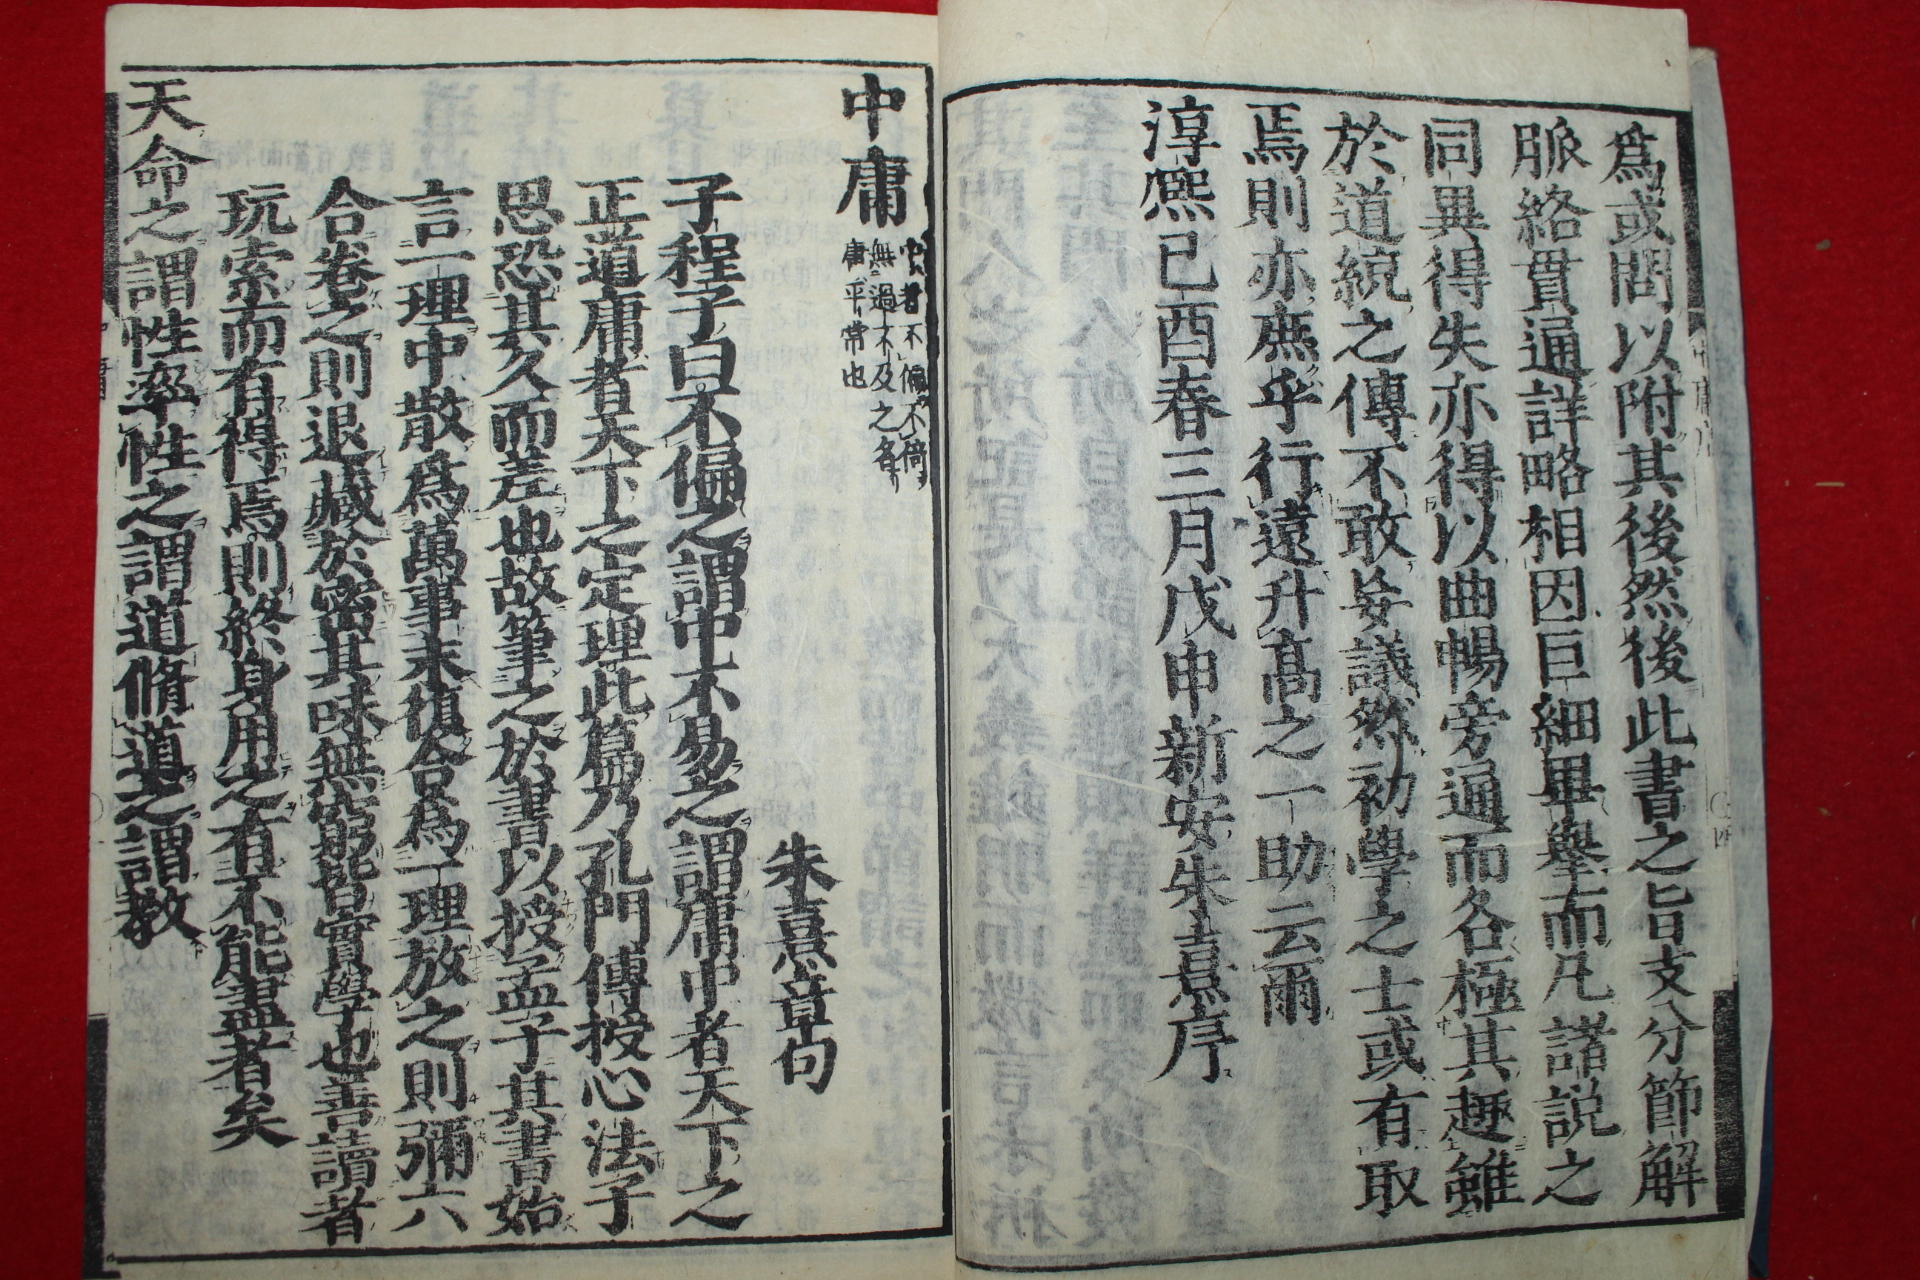 爲或問以附其後然後此書之旨支分節解
脈絡貫通詳略相因巨細畢擧而凡諸説之
同異得失亦得以曲暢旁通而各極其趣雖
於道統之傳不敢妄議然初學之士或有取
焉則亦庶乎行遠升高之一助云爾
淳熈已酉春三月戊申新安朱熹序
中庸
中者不偏不倚
無過不及之名
庸平常也
朱熹章句
子程子曰不偏之謂中不易之謂庸中者天下之
正道庸者天下之定理此篇乃孔門傳授心法子
思恐其久而差也故筆之於書以授孟子其書始
言一理中散爲萬事末復合爲一理放之則彌六
合卷之則退藏於密其味無窮皆實學也善讀者
玩索而有得焉則終身用之有不能盡者矣
天命之謂性率性之謂道脩道之謂教